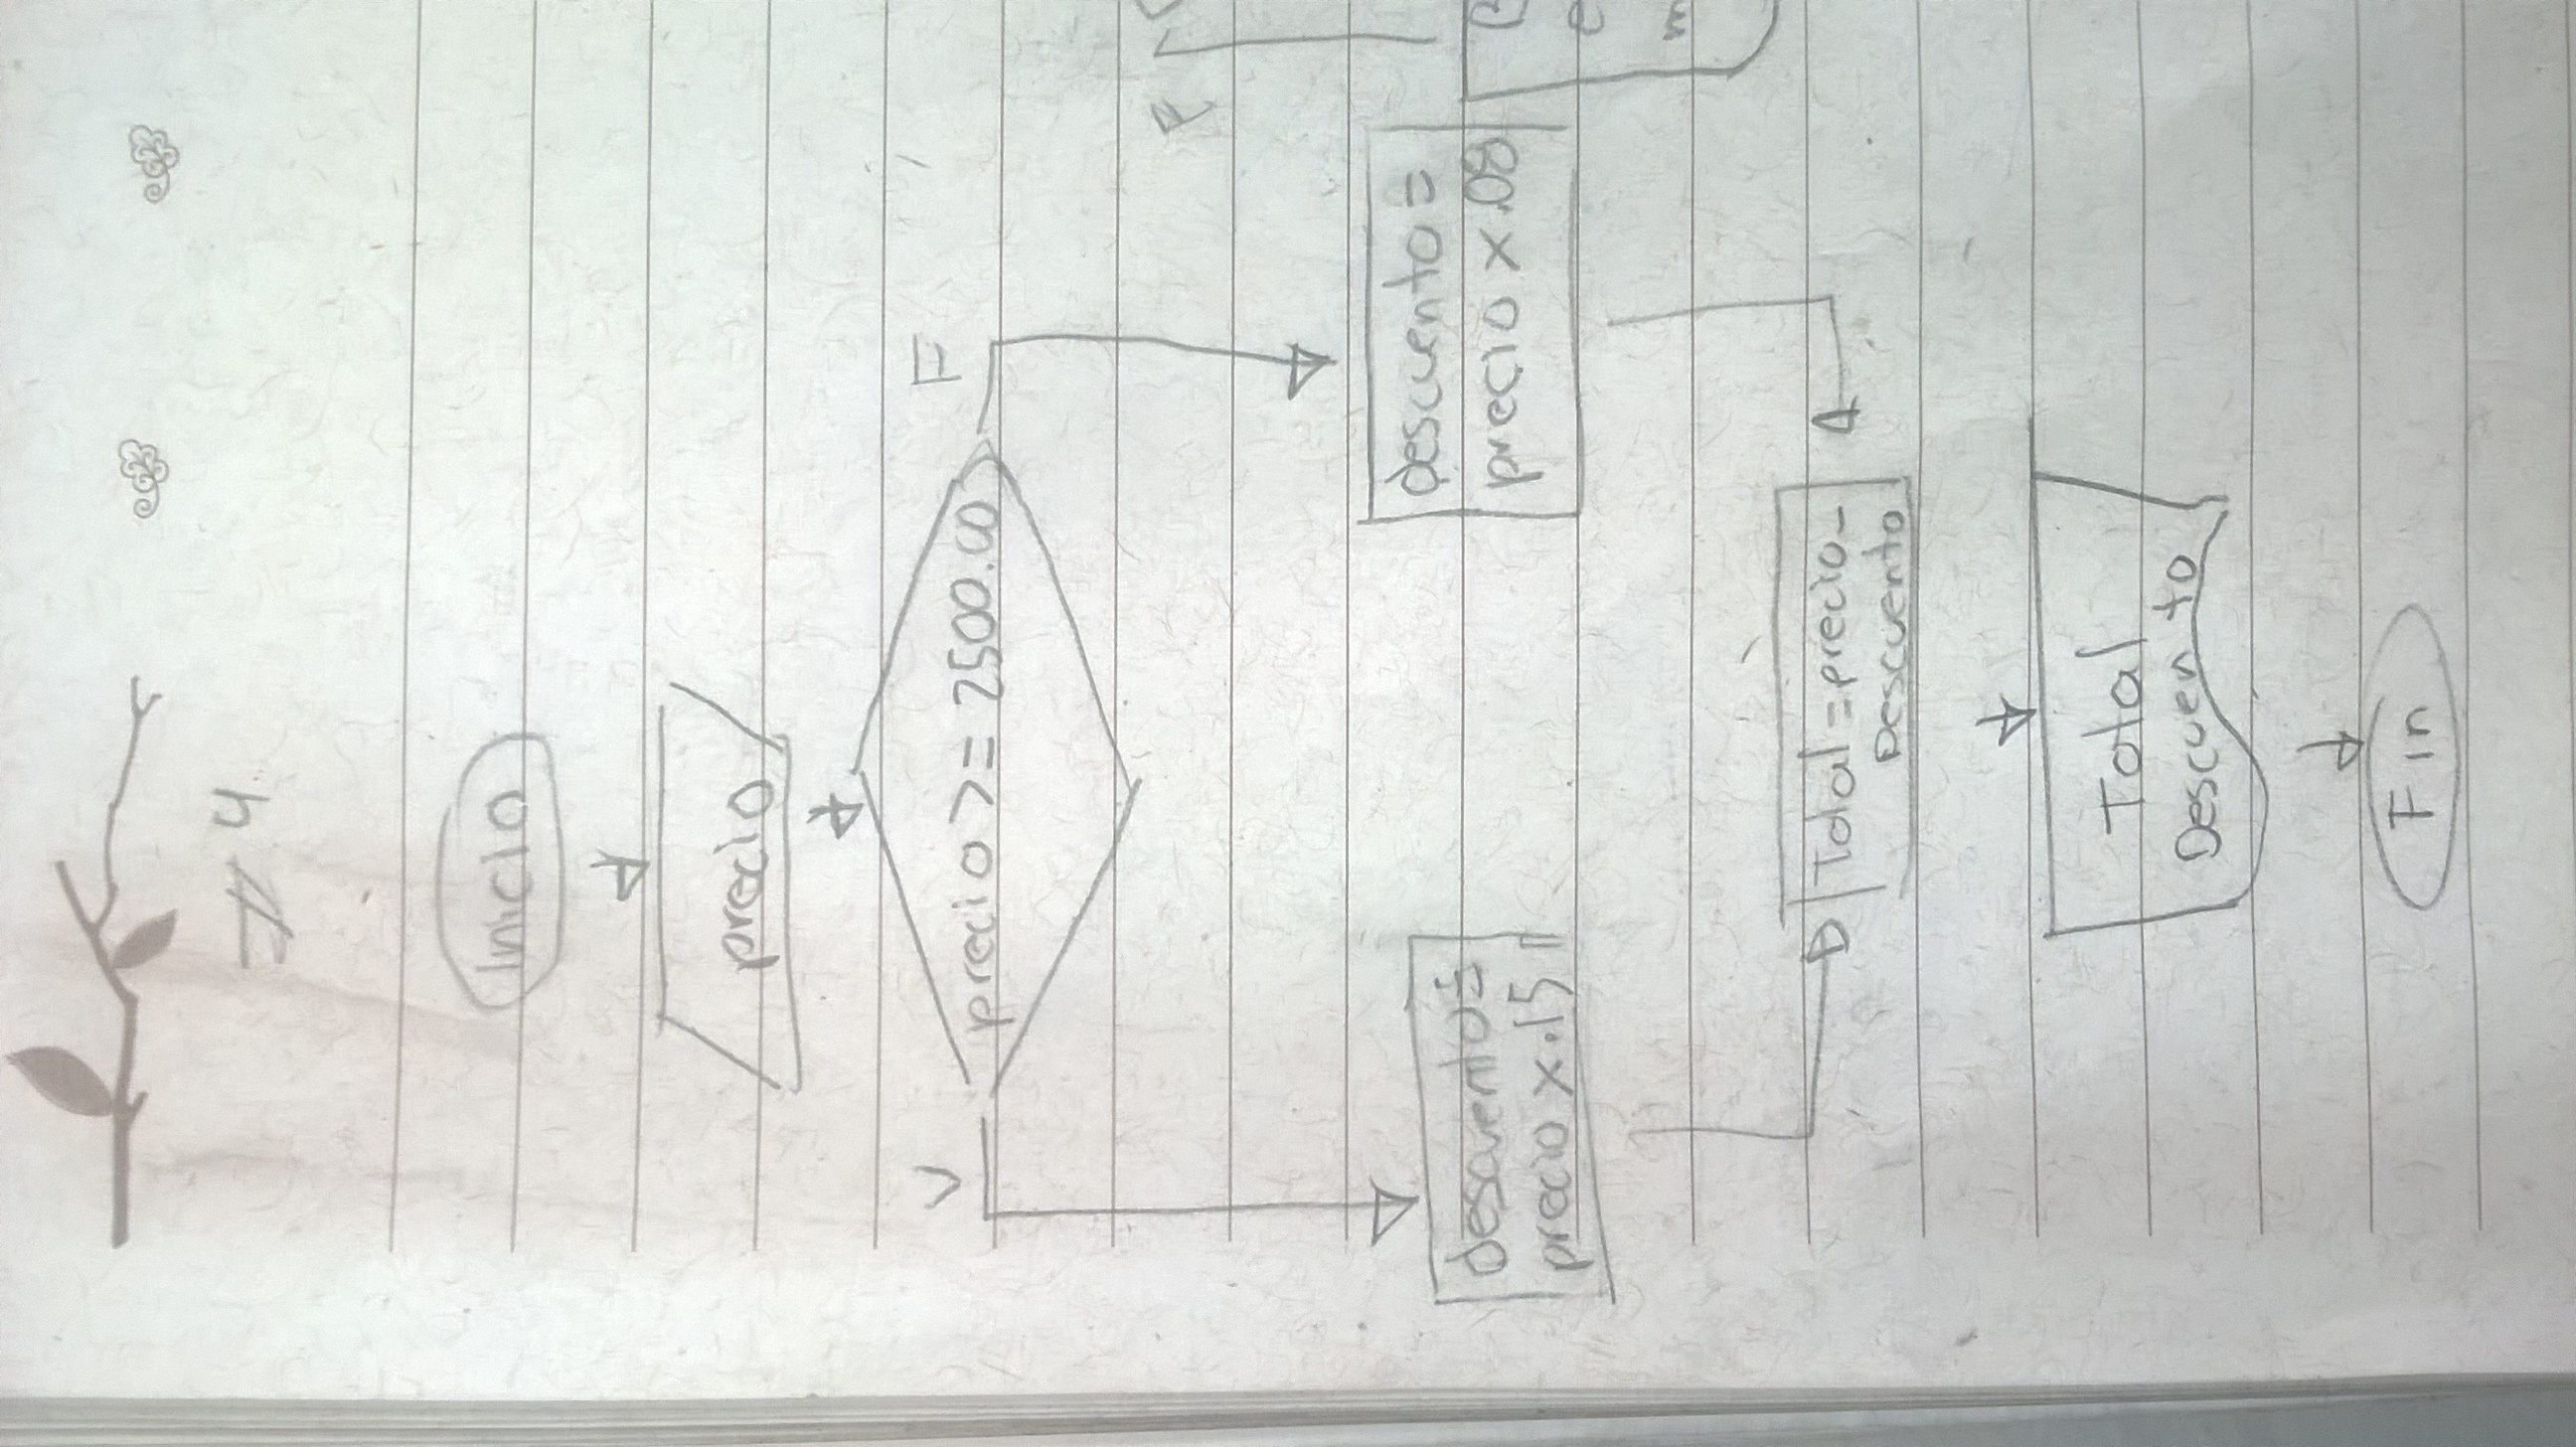 # 4
Inicio
precio
precio >= 2500.00
V
F
descuento =
precio x .15
descuento =
precio x .08
Total = precio -
Descuento
Total
Descuento
Fin